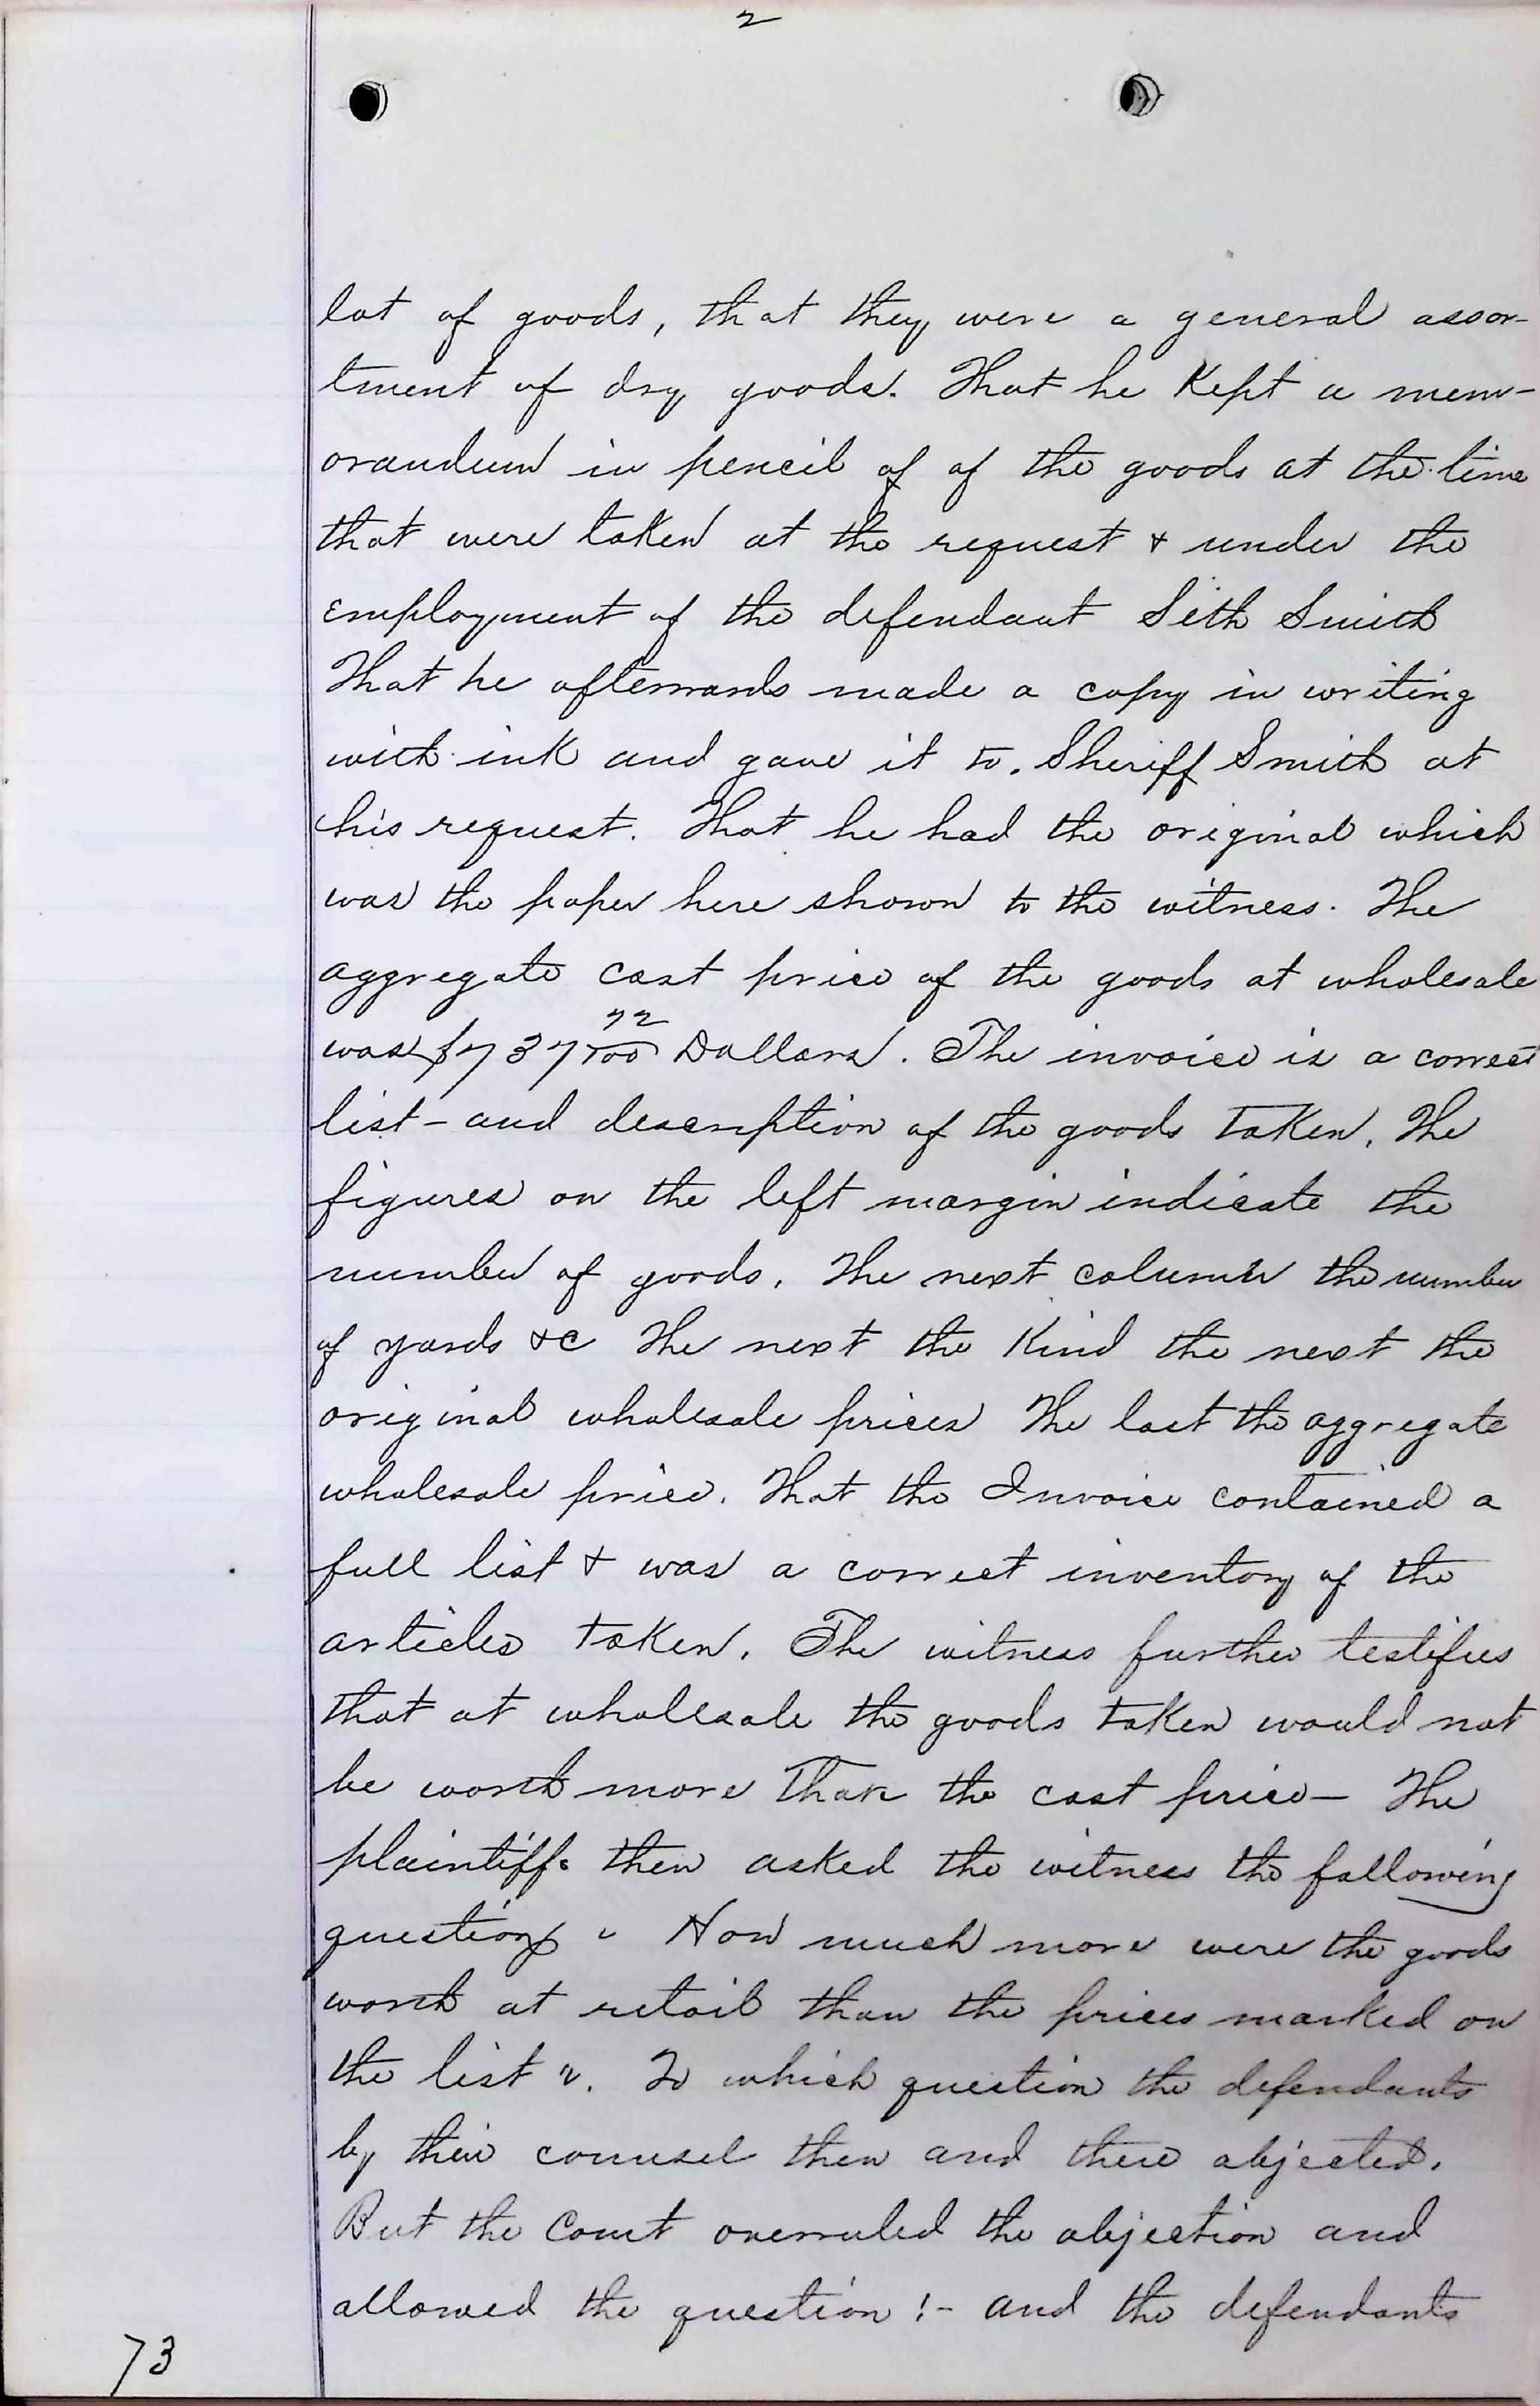 2
lot of goods, that they were a general assor-
tment of dry goods. That he Kept a mem-
orandum in pencil of of the goods at the time
that were taken at the request & under the
employment of the defendant Seth Smith
That he afterwards made a copy in writing
with ink and gave it to. Sheriff Smith at
his request. That he had the original which
was the paper here shown to the witness. The
aggregate cost price of the goods at wholesale
was $737 72/100 Dollars. The invoice is a correct
list - and description of the goods taken. The
figures on the left margin indicate the
number of goods. The next column the number
of yards &c The next the Kind the next the
original wholesale prices The last the aggregate
wholesale price. That the Invoice contained a
full list & was a correct inventory of the
articles taken. The witness further testifies
that at wholesale the goods taken would not
be worth more than the cost price - The
plaintiffs then asked the witness the following
question " How much more were the goods
worth at retail than the prices marked on
the list ". To which question the defendants
by their counsel then and there objected.
But the Court overruled the objection and
allowed the question :- and the defendants
73